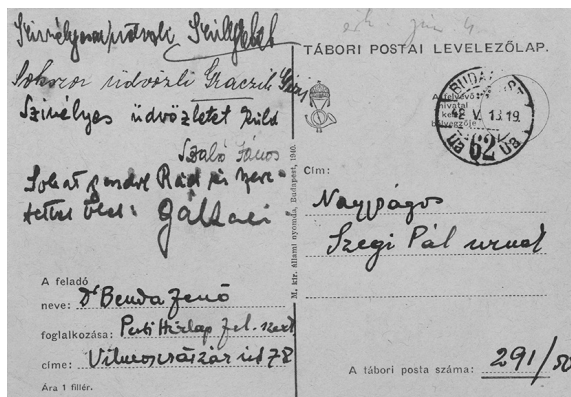 Sokszor üdvözli Graczik
Szívélyes üdvözletet küld
Szabó János
Sokat gondol Rád és szere-
tettel ölel: Gáltaei
A feladó
neve: Dr Benda Jenő
foglalkozása: Pesti Hirlap fel. szerk
címe: Vilmos császár út 78
Ára 1 fillér.
M. kir. állami nyomda, Budapest, 1940.
érk. jún. 4.
TÁBORI POSTAI LEVELEZŐLAP.
A felvevő
hivatal
kelet-
bélyegzője
BUDAPEST
V. 13. 19
62
Cím:
Nagyságos
Szegi Pál urnak
A tábori posta száma: 291/50